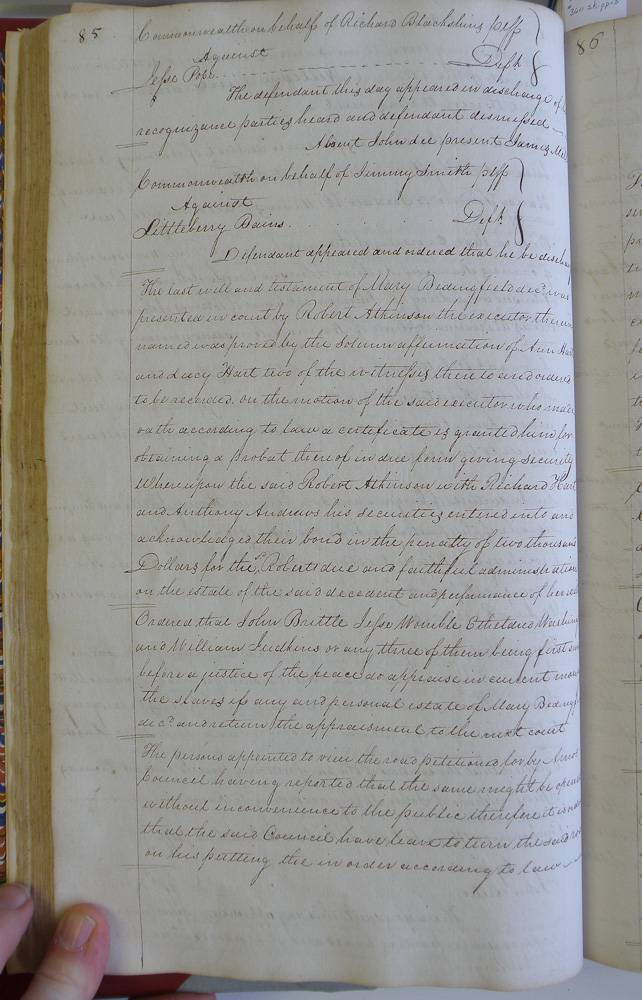 85
Commonwealth on behalf of Richard Blackshins plff
Against
Jesse Pope Deft
The defendant this day appeared in discharge of
recognizance parties heard and defendant desmissed
Absent John dee present James
Commonwealth on behalf of Jimmy Smith plff
Against
Littleberry Bains Deft
Defendant appeared and ordered that he be discha
The last will and testament of Mary Bedingfield decd was
presented in court by Robert Atkinson the executor therein
named was proved by the Solemn affirmation of Ann Hart
and Lucy Hart two of the witnesses thereto and ordered
to be recorded. on the motion of the said executor who made
oath according to law a certificate is granted him for
obtaining a Probat thereof in due form giving security
Whereupon the said Robert Atkinson with Richard Hart
and Anthony Andrews his securities entered into and
acknowledged their bond in the penalty of two thousand
Dollars for the sd Roberts due and faithful administration
on the estate of the said decedent and performance of her will
Ordered that John Brittle Jesse Womble Etheldred
and William Judkins or any three of them being first
before a justice of the peace do appraise in current mon
the slaves if any and personal estate of Mary Beding
decd and return the appraisment to the next court
The persons appointed to view the road petitioned for by
Council having reported that the same might be opened
without inconvenience to the public therefore it is
that the said Council have leave to turn the said
on his putting the in order according to law
86